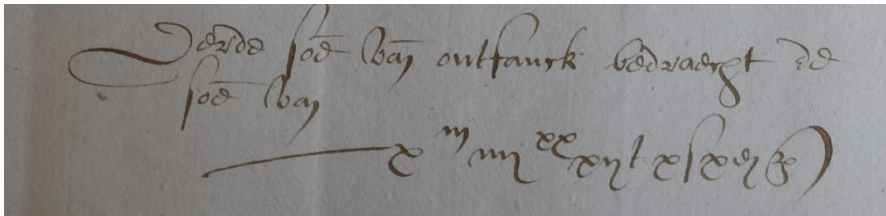 Derde som̄e van̄ ontfanck bedraecht de
som̄e van
x^m iiij^xx xij l x s x d g